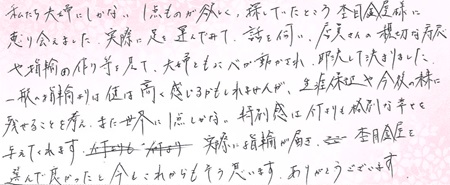 私たち夫婦にしかない1点ものが欲しく、探していたところ杢目金屋様に
出会えました。実際に足を運んでみて、話を伺い、店員さんの親切な対応
や指輪の作り等を見て、夫婦ともに心が動かされ、即決して決まりました。
一般の指輪よりは値は高く感じるかもしれませんが、生涯保証や今後の形に
残せることを考え、また世界に1点しかない特別感は何よりも格別な幸せを
与えてくれます。実際に指輪が届き、杢目金屋を
選んで良かったと今もこれからもそう思います。ありがとうございます。